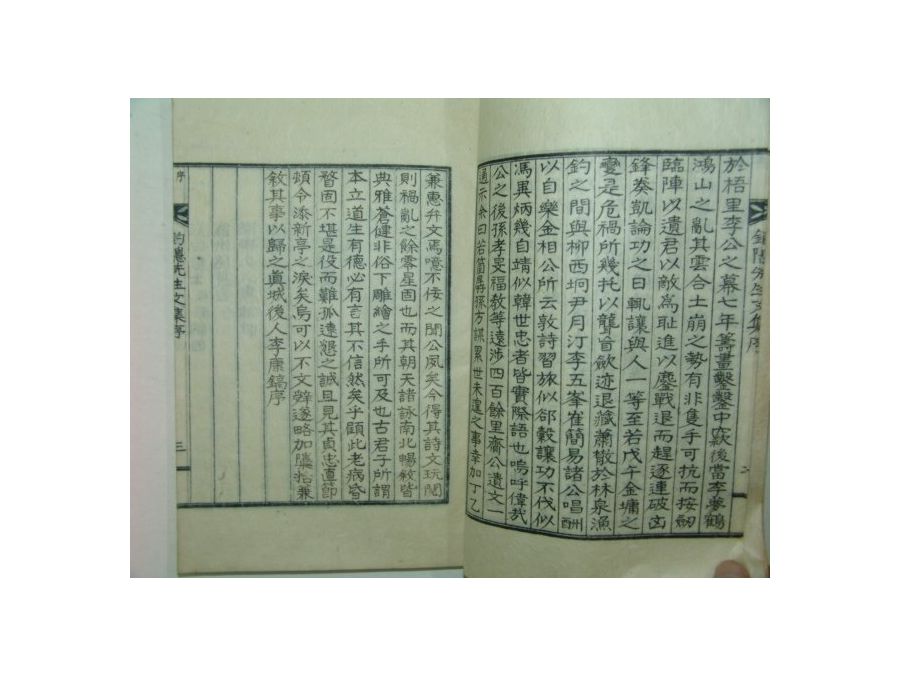 釣隱先生文集序
二
於梧里李公之幕七年籌畫鑿鑿中窾後當李夢鶴
鴻山之亂其雲合土崩之勢有非隻手可抗而按劒
臨陣以遺君以敵爲恥進以鏖戰退而趕逐連破凶
鋒奏凱論功之日輒讓與人一等至若戊午金墉之
變是危禍所幾托以聾盲歛迹退藏蕭散於林泉漁
釣之間與柳西坰尹月汀李五峯崔簡易諸公唱酬
以自樂金相公所云敦詩習旅似郤縠讓功不伐似
馮異炳幾自靖似韓世忠者皆實際語也嗚呼偉哉
公之後孫孝旻福敎等遠涉四百餘里齎公遺文一
通示余曰若箇孱孫方謀累世未遑之事幸加丁乙
兼惠弁文焉噫不佞之聞公夙矣今得其詩文玩閱
則禍亂之餘零星固也而其朝天諸詠南北暢敘皆
典雅蒼健非俗下雕繪之手所可及也古君子所謂
本立道生有德必有言其不信然矣乎顧此老病昏
瞀固不堪是役而難孤遠懇之誠且見其貞忠直節
頻令添新亭之淚矣烏可以不文辭遂略加櫽括兼
敘其事以歸之眞城後人李康鎬序
序
釣隱先生文集序
三